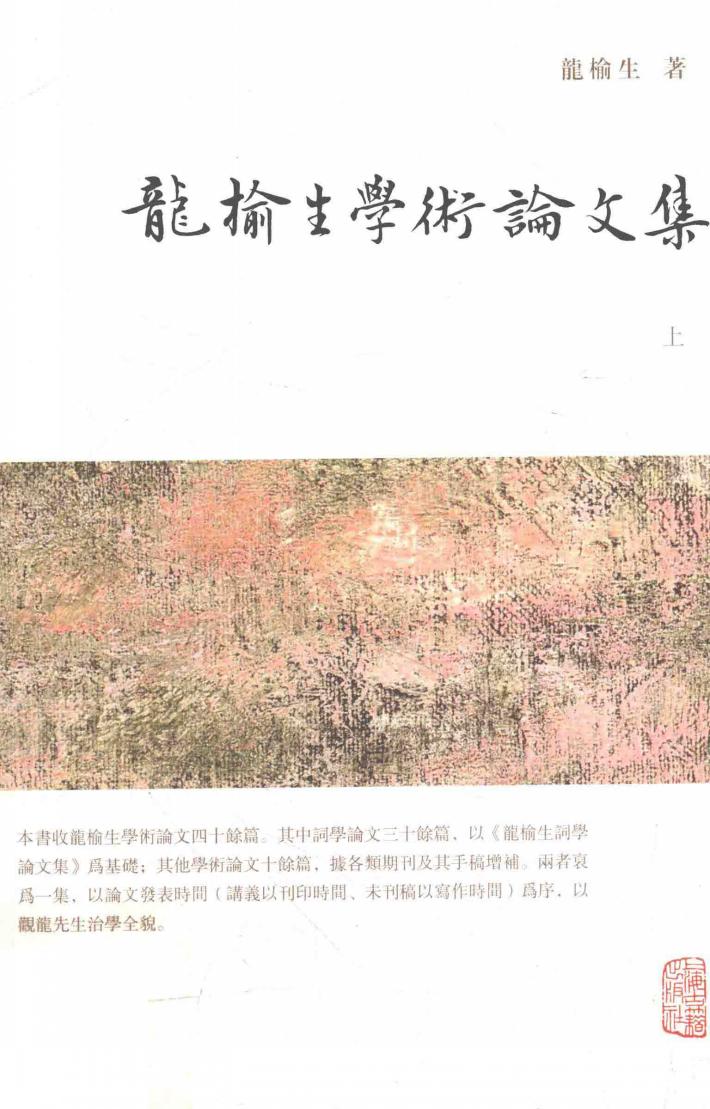 龍榆生 著
龍榆生學術論文集
上
本書收龍榆生學術論文四十餘篇。其中詞學論文三十餘篇，以《龍榆生詞學
論文集》爲基礎；其他學術論文十餘篇，據各類期刊及其手稿增補。兩者裒
爲一集，以論文發表時間（講義以刊印時間、未刊稿以寫作時間）爲序，以
觀龍先生治學全貌。
上海古籍
出版社